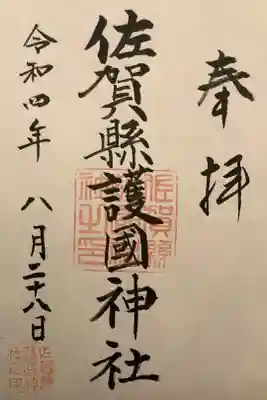 奉拝
佐賀縣護國神社
令和四年 八月二十八日